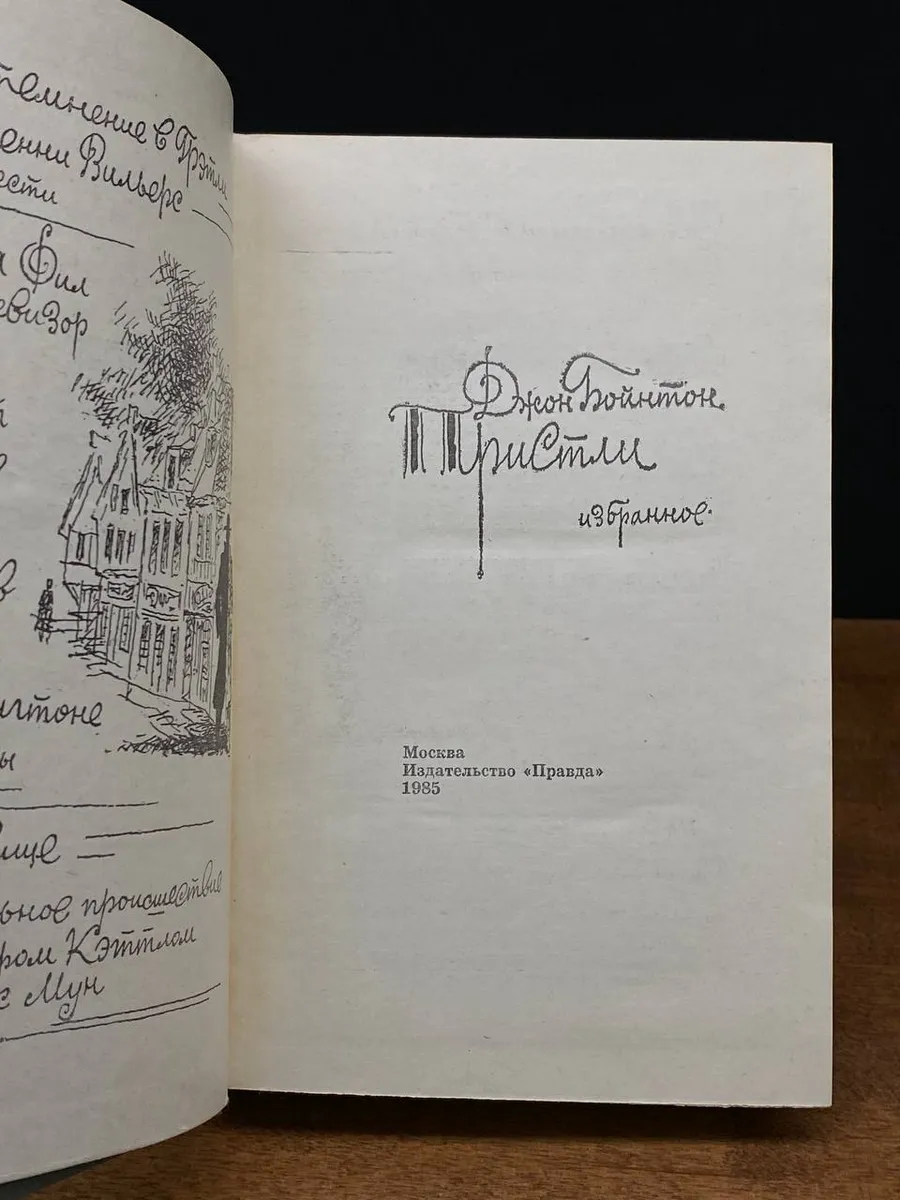 темнение в Грэтли
енни Вильерс
ести
Фил
евизор
й
в
нгтоне
ы
ище
ьное происшествие
ром Кэттлом
с Мун
Джон Бойнтон
Пристли
избранное
Москва
Издательство «Правда»
1985